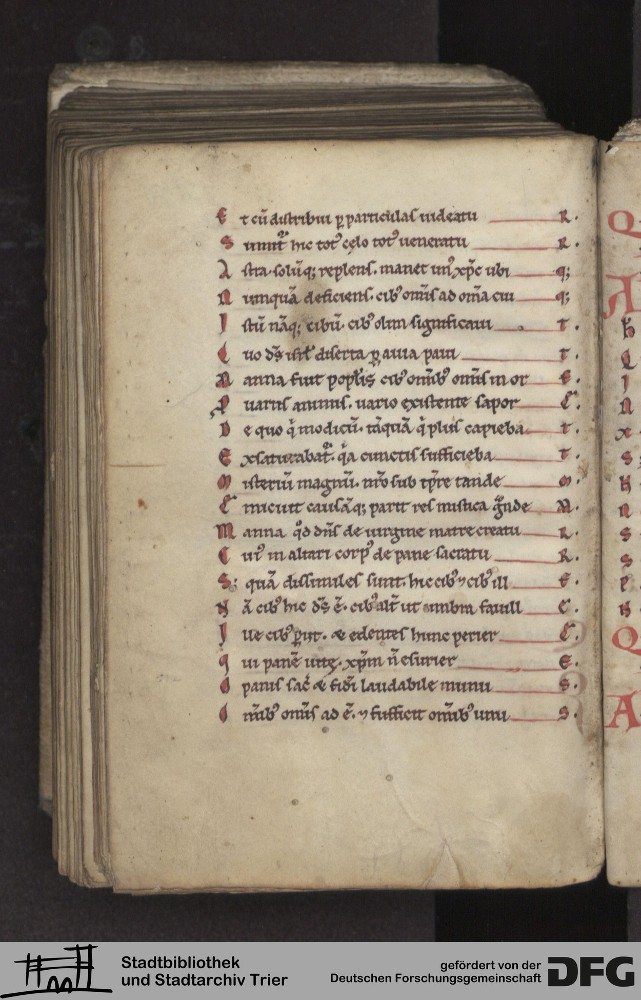 E t cū distribui p particulas uideatu R.
S umit᷑ hic tot᷒ celo tot᷒ ueneratu R.
A stra solūq; replens. manet un᷒ xpc ubi q;
N unquā deficiens. cib᷒ omīs ad om̄a cui q;
I stū nāq; cibū. cib᷒ olim significaui T.
Q uo ds isrl deserta p auia paui T.
M anna fuit popl'is cib᷒ omīb᷒ omīs in or E.
P uariis animis. uario existente sapor E.
D e quo q̇ modicū. tāquā q̇ plus capieba T.
E xsaturabat᷑. q̇a cunctis sufficieba T.
M isteriū magnū. nr̄o sub tp̄re tande M.
E micuit causāq; parit res mistica g̊nde M.
M anna qd dn̄s de uirgine matre creatu R.
C ui᷒ in altari corp᷒ de pane sacratu R.
S; quā dissimiles sunt. hic cib᷒ ⁊ cib᷒ ill E.
N ā cib᷒ hic ds ē. cib᷒ alt᷑ ut umbra fauill E.
I lle cib᷒ perit. & edentes hunc perier E.
q ui panē uitę. xpm n̄ esurier E.
O panis sac̄ & fidī laudabile munu S.
O mīb᷒ omīs ad ē. ⁊ sufficit omīb᷒ unu S.
Q
A
h
Q
I
N
S
h
N
S
S
P
N
Q
A
Stadtbibliothek
und Stadtarchiv Trier
gefördert von der
Deutschen Forschungsgemeinschaft
DFG